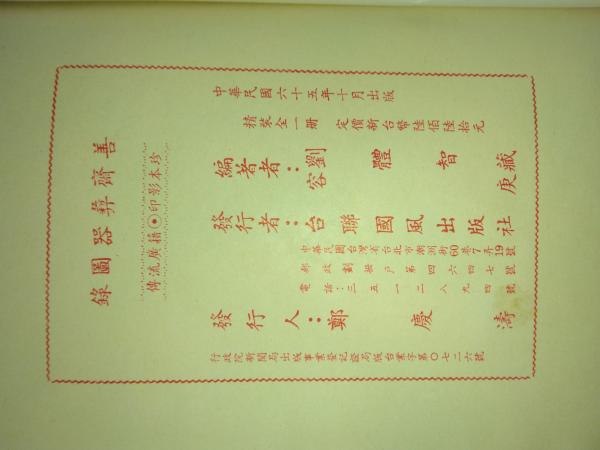 善齋彝器圖錄
珍本影印◎籍廣流傳
中華民國六十五年十月出版
精裝全一冊 定價新台幣陸佰陸拾元
編著者：劉體智藏
容庚
發行者：台聯國風出版社
中華民國台灣省台北市潮洲街60巷7弄19號
郵政劃撥戶第四六四七號
電話：三五一二八九四號
發行人：鄭慶濤
行政院新聞局出版事業登記證局版台業字第〇七二六號